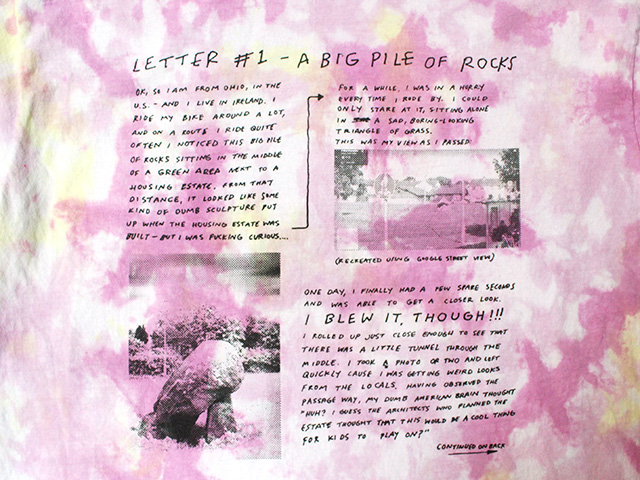 LETTER #1 - A BIG PILE OF ROCKS
OK, SO I AM FROM OHIO, IN THE
U.S. - AND I LIVE IN IRELAND. I
RIDE MY BIKE AROUND A LOT,
AND ON A ROUTE I RIDE QUITE
OFTEN I NOTICED THIS BIG PILE
OF ROCKS SITTING IN THE MIDDLE
OF A GREEN AREA NEXT TO A
HOUSING ESTATE. FROM THAT
DISTANCE, IT LOOKED LIKE SOME
KIND OF DUMB SCULPTURE PUT
UP WHEN THE HOUSING ESTATE WAS
BUILT - BUT I WAS FUCKING CURIOUS....
FOR A WHILE, I WAS IN A HURRY
EVERY TIME I RODE BY. I COULD
ONLY STARE AT IT, SITTING ALONE
IN A SAD, BORING-LOOKING
TRIANGLE OF GRASS.
THIS WAS MY VIEW AS I PASSED:
(RECREATED USING GOOGLE STREET VIEW)
ONE DAY, I FINALLY HAD A FEW SPARE SECONDS
AND WAS ABLE TO GET A CLOSER LOOK.
I BLEW IT, THOUGH!!!
I ROLLED UP JUST CLOSE ENOUGH TO SEE THAT
THERE WAS A LITTLE TUNNEL THROUGH THE
MIDDLE. I TOOK A PHOTO OR TWO AND LEFT
QUICKLY CAUSE I WAS GETTING WEIRD LOOKS
FROM THE LOCALS. HAVING OBSERVED THE
PASSAGE WAY, MY DUMB AMERICAN BRAIN THOUGHT
"HUH? I GUESS THE ARCHITECTS WHO PLANNED THE
ESTATE THOUGHT THAT THIS WOULD BE A COOL THING
FOR KIDS TO PLAY ON?"
CONTINUED ON BACK